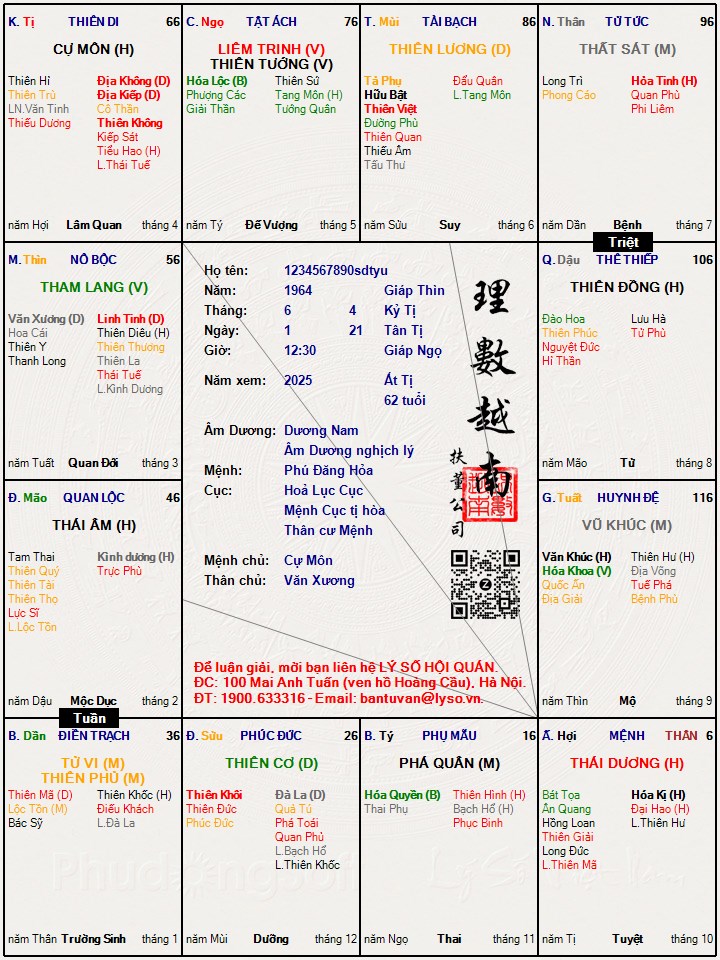 K. Tị THIÊN DI 66
CỰ MÔN (H)
Thiên Hỉ Địa Không (Đ)
Thiên Trù Địa Kiếp (Đ)
LN.Văn Tinh Cô Thần
Thiếu Dương Thiên Không
Kiếp Sát
Tiểu Hao (H)
L.Thái Tuế
năm Hợi Lâm Quan tháng 4
C. Ngọ TẬT ÁCH 76
LIÊM TRINH (V)
THIÊN TƯỚNG (V)
Hóa Lộc (B) Thiên Sứ
Phượng Các Tang Môn (H)
Giải Thần Tướng Quân
năm Tý Đế Vượng tháng 5
T. Mùi TÀI BẠCH 86
THIÊN LƯƠNG (Đ)
Tả Phụ Đẩu Quân
Hữu Bật L.Tang Môn
Thiên Việt
Đường Phù
Thiên Quan
Thiếu Âm
Tấu Thư
năm Sửu Suy tháng 6
N. Thân TỬ TỨC 96
THẤT SÁT (M)
Long Trì Hỏa Tinh (H)
Phong Cáo Quan Phù
Phi Liêm
năm Dần Bệnh tháng 7
Triệt
M. Thìn NÔ BỘC 56
THAM LANG (V)
Văn Xương (Đ) Linh Tinh (Đ)
Hoa Cái Thiên Diêu (H)
Thiên Y Thiên Thương
Thanh Long Thiên La
Thái Tuế
L.Kình Dương
năm Tuất Quan Đới tháng 3
Họ tên: 1234567890sdtyu
Năm: 1964 Giáp Thìn
Tháng: 6 4 Kỷ Tị
Ngày: 1 21 Tân Tị
Giờ: 12:30 Giáp Ngọ
Năm xem: 2025 Ất Tị
62 tuổi
Âm Dương: Dương Nam
Âm Dương nghịch lý
Mệnh: Phú Đăng Hỏa
Cục: Hoả Lục Cục
Mệnh Cục tị hòa
Thân cư Mệnh
Mệnh chủ: Cự Môn
Thân chủ: Văn Xương
理數越南
扶董公司
Để luận giải, mời bạn liên hệ LÝ SỐ HỘI QUÁN.
ĐC: 100 Mai Anh Tuấn (ven hồ Hoàng Cầu), Hà Nội.
ĐT: 1900.633316 - Email: bantuvan@lyso.vn.
Q. Dậu THÊ THIẾP 106
THIÊN ĐỒNG (H)
Đào Hoa Lưu Hà
Thiên Phúc Tử Phù
Nguyệt Đức
Hỉ Thần
năm Mão Tử tháng 8
Đ. Mão QUAN LỘC 46
THÁI ÂM (H)
Tam Thai Kình dương (H)
Thiên Quý Trực Phù
Thiên Tài
Thiên Thọ
Lực Sĩ
L.Lộc Tồn
năm Dậu Mộc Dục tháng 2
Tuần
G. Tuất HUYNH ĐỆ 116
VŨ KHÚC (M)
Văn Khúc (H) Thiên Hư (H)
Hóa Khoa (V) Địa Võng
Quốc Ấn Tuế Phá
Địa Giải Bệnh Phù
năm Thìn Mộ tháng 9
B. Dần ĐIỀN TRẠCH 36
TỬ VI (M)
THIÊN PHỦ (M)
Thiên Mã (Đ) Thiên Khốc (H)
Lộc Tồn (M) Điếu Khách
Bác Sỹ L.Đà La
năm Thân Trường Sinh tháng 1
Đ. Sửu PHÚC ĐỨC 26
THIÊN CƠ (Đ)
Thiên Khôi Đà La (Đ)
Thiên Đức Quả Tú
Phúc Đức Phá Toái
Quan Phủ
L.Bạch Hổ
L.Thiên Khốc
năm Mùi Dưỡng tháng 12
B. Tý PHỤ MẪU 16
PHÁ QUÂN (M)
Hóa Quyền (B) Thiên Hình (H)
Thai Phụ Bạch Hổ (H)
Phục Binh
năm Ngọ Thai tháng 11
Ấ. Hợi MỆNH THÂN 6
THÁI DƯƠNG (H)
Bát Tọa Hóa Kị (H)
Ân Quang Đại Hao (H)
Hồng Loan L.Thiên Hư
Thiên Giải
Long Đức
L.Thiên Mã
năm Tị Tuyệt tháng 10